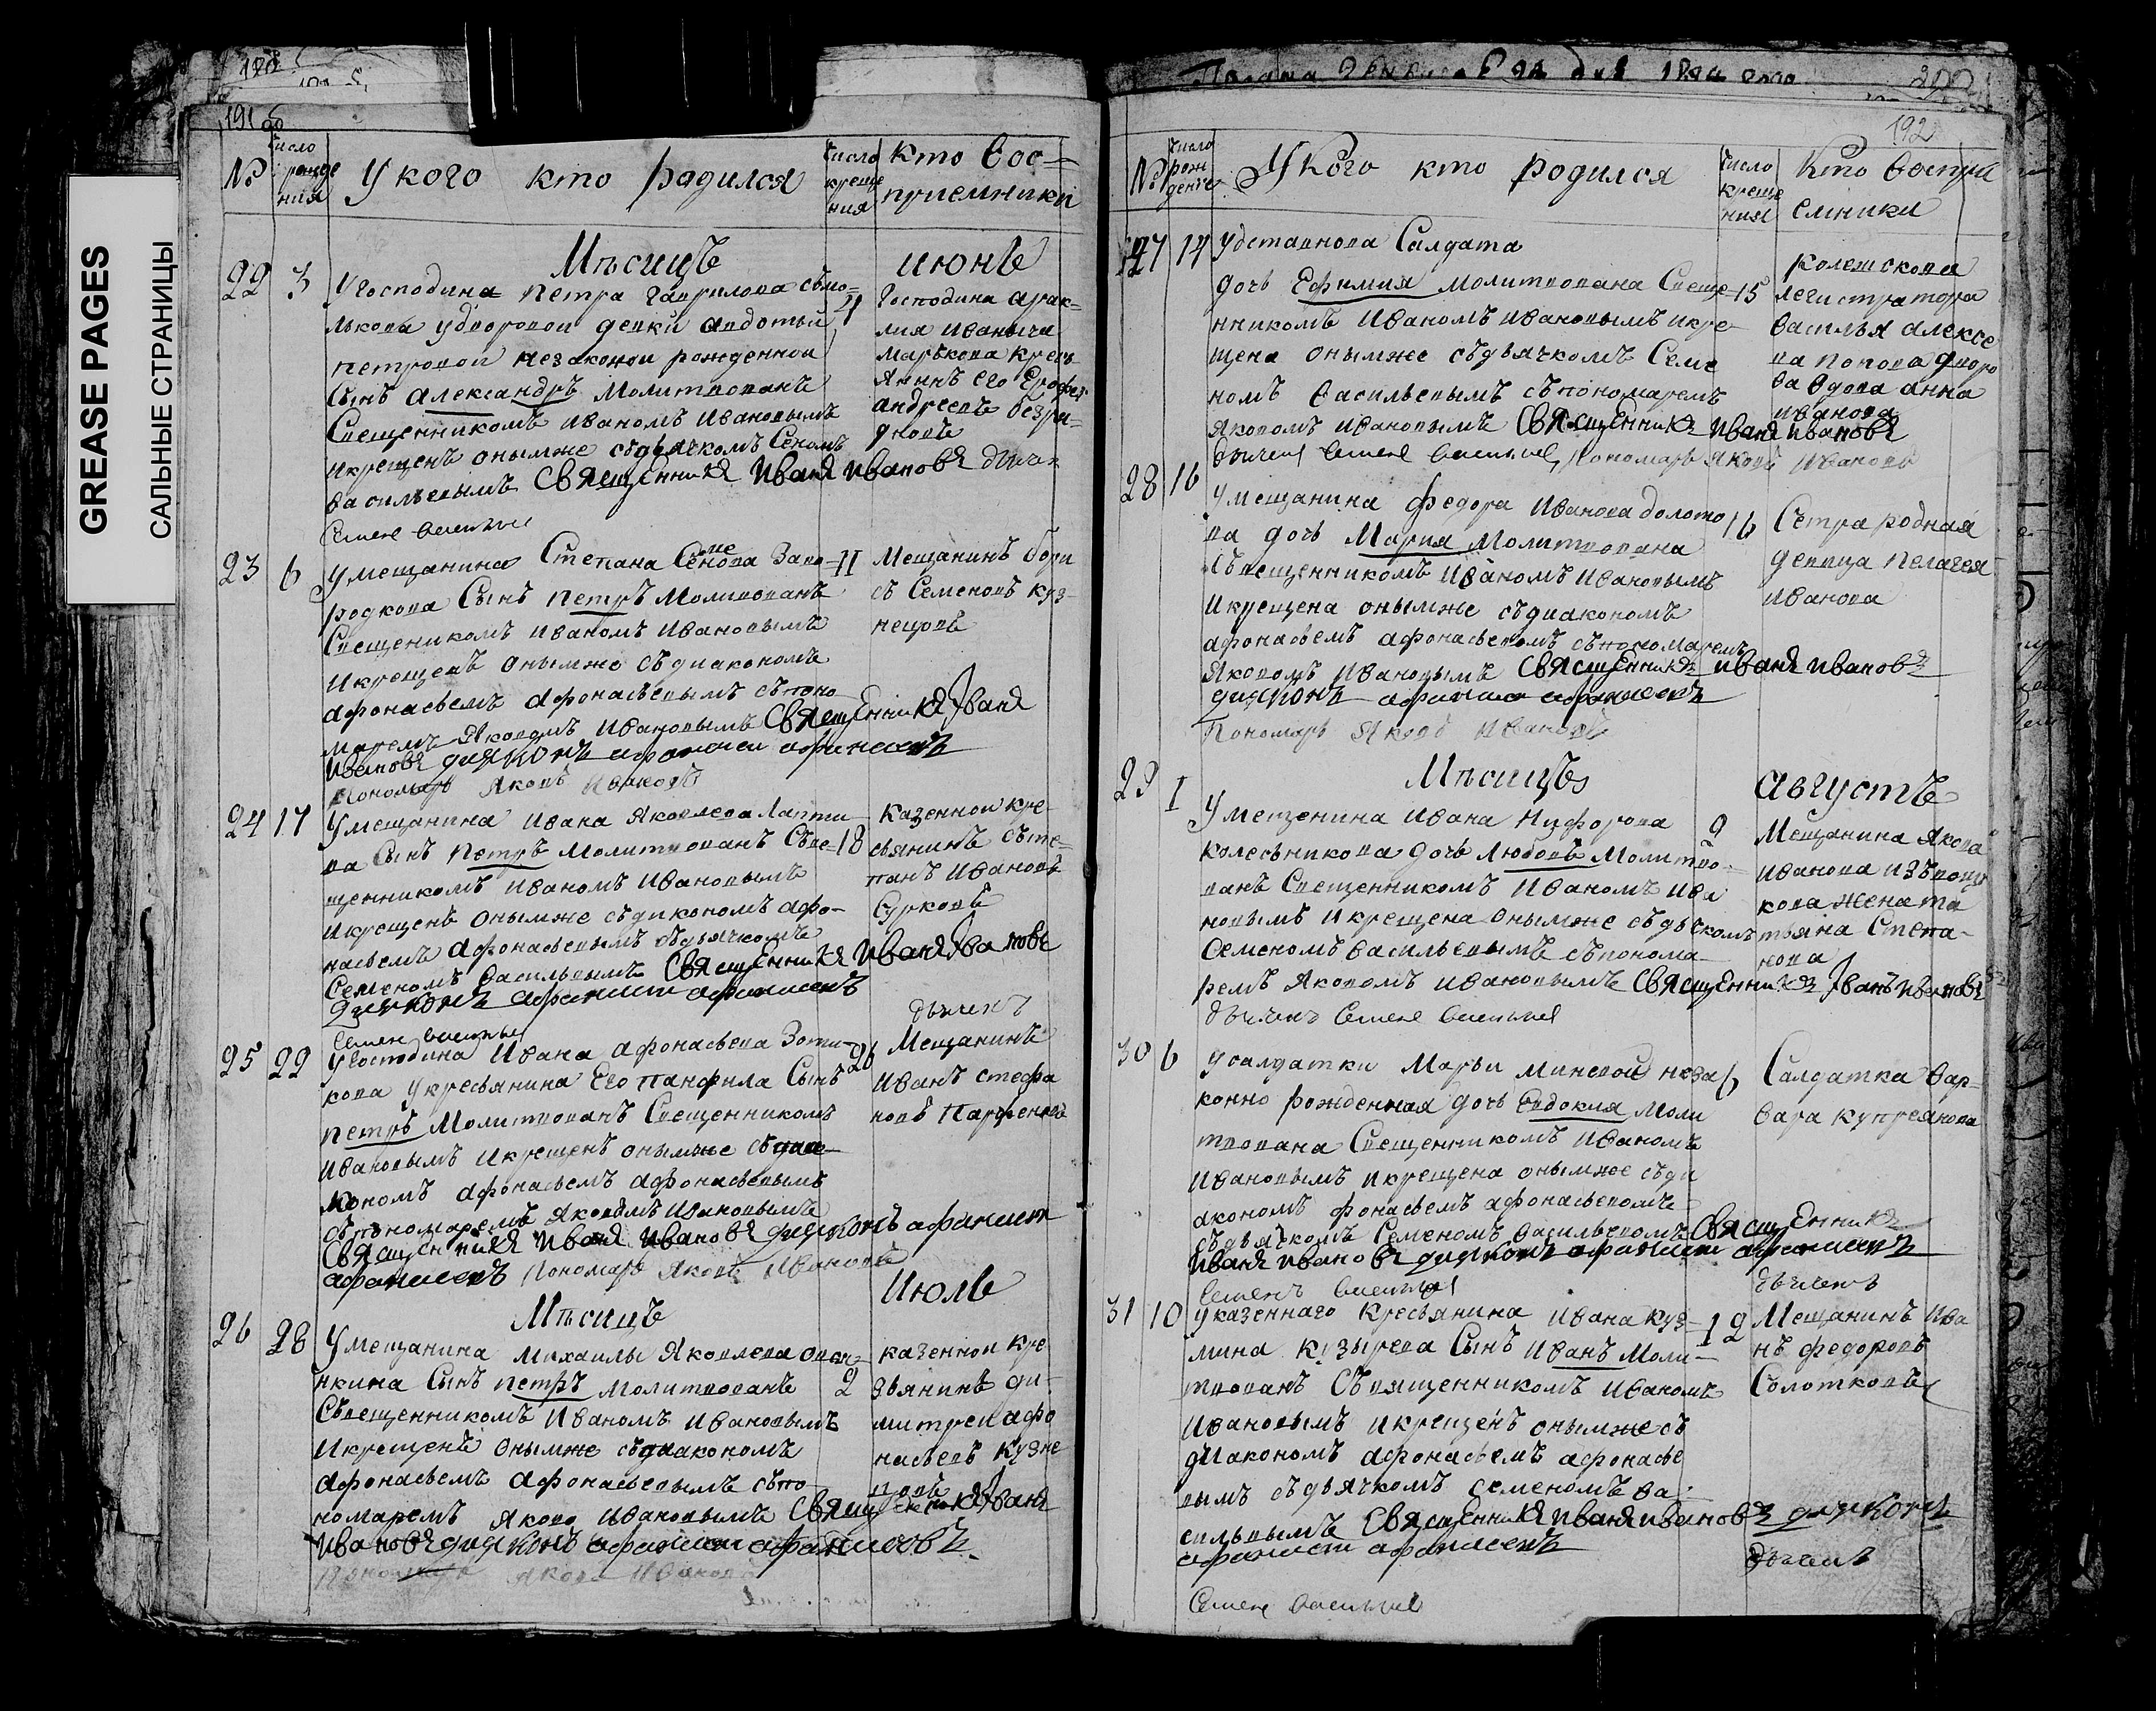 GREASE PAGES
САЛЬНЫЕ СТРАНИЦЫ
191 об
№
число рожде ния
У кого кто родился
число креще ния
кто вос=
приемники
Мѣсяцъ июнь
22 3
У Господина Петра Гаврилова
лькова удворовой девки авдотьи 4
петровой незаконой рожденной
Сынъ Александръ Молитвованъ
Свещенникомъ Иваномъ Ивановымъ
икрещенъ онымже съдьячкомъ Семеномъ
васильевымъ Священникъ Иванъ Ивановъ дьячекъ
Семенъ Васильевъ
Господина
Иваныча
Марькова кресь
янинъ его Ерофей
андреевъ
23 6
Умещанина Степана Семенова Заво=
родкова Сынъ Петръ Молитвованъ
Свещеникомъ Иваномъ Ивановымъ
икрещенъ онымже съдиакономъ
Афонасьемъ Афонасьевымъ съпоно
маремъ Яковомъ Ивановымъ Священникъ Иванъ
Ивановъ диаконъ афанасии афанасевъ
Пономарь Яковъ Ивановъ
11
Мещанинъ бори
съ Семеновъ куз-
нецовъ
24 17
Умещанина Ивана Яковлева Лапти
ва Сынъ Петръ Молитвованъ Свe=
щенникомъ Иваномъ Ивановымъ
икрещенъ онымже съдиакономъ афо-
насьемъ Афонасьевымъ съдьячкомъ
Семеномъ Васильевымъ Священникъ Иванъ Ивановъ
диаконъ афанасии афанасевъ
дьячекъ
Семенъ Васильевъ
18
казенной кре-
сьянинъ Съте=
панъ Ивановъ
Сурковъ
25 22
У Господина Ивана Афонасьева Зоти-
кова укресьянина Его Панфила Сынъ
Петръ Молитвованъ Свещенникомъ
Ивановымъ икрещенъ онымже съдиа-
кономъ Афонасьемъ Афонасьевымъ
съпономаремъ Яковомъ Ивановымъ
Священникъ Иванъ Ивановъ диаконъ афанасии
афанасевъ Пономарь Яковъ Ивановъ
26
Мещанинъ
Иванъ стефа
новъ Парфеновъ
Мѣсяцъ Июль
26 28
Умещанина Михаилы Яковлева
нкина Сынъ Петръ Молитвованъ 2
Съвещенникомъ Иваномъ Ивановымъ
икрещенъ онымже съдиакономъ
Афонасьемъ Афонасьевымъ съпо
номаремъ Яково Ивановымъ Священникъ Иванъ
Ивановъ диаконъ афанасии афанасовъ
Пономарь Яковъ Ивановъ
казенной кре
зьянинъ ди-
митрей афо
насьевъ Кузне
цовъ
200
192
№
число рож денье
У кого кто родился
число креще ния
Кто воспри
емники
27 14
Уотставнова Салдата
дочь Ефимия Молитвована Свеще=
нникомъ Иваномъ Ивановымъ икре-
щена онымже съдьячкомъ Семе
номъ Васильевымъ съпономаремъ
Яковомъ Ивановымъ Священникъ Иванъ Ивановъ
дьячекъ Семенъ Васильевъ Пономарь Яковъ Ивановъ
15
колешскова
легистратора
Василья Алексе
ва Попова дворо
ва вдова анна
иванова
28 16
Умещанина Федора Иванова Долото
ва дочь Мария Молитвована
Съвещенникомъ Иваномъ Ивановымъ
икрещена онымже съдиакономъ
афонасьемъ афонасьевомъ съпономаремъ
Яковомъ Ивановымъ Священникъ Иванъ Ивановъ
диаконъ афанасии афанасевъ
Пономарь Яковъ Ивановъ
16
Сетра родная
девица Пелагея
Иванова
Мѣсяцъ Августъ
29 1
Умещенина Ивана Нифорова
колесьникова дочь Любовь Молитво-
ванъ Свещенникомъ Иваномъ Ива
новымъ икрещена онымже съдьячкомъ
Семеномъ Васильевымъ съпонома-
ремъ Яковомъ Ивановымъ Священникъ Иванъ Ивановъ
дьячекъ Семенъ Васильевъ
9
Мещанина Якова
Иванова
кова жена та
тьяна Степа-
нова
30 6
Усалдатки Марьи Миневой неза
конно рожденная дочь Евдокия Моли
твована Свещенникомъ Иваномъ
Ивановымъ икрещена онымже съди
акономъ фонасьемъ афонасьевомъ
съдьячкомъ Семеномъ Васильевомъ Священникъ
Иванъ Ивановъ диаконъ афанасии афанасевъ
дьячекъ
Семенъ Васильевъ
6
Салдатка Вар-
вара Купреянова
31 10
Указеннаго кресьянина Ивана Куз-
мина Кузырева Сынъ Иванъ Моли-
твованъ Съвященникомъ Иваномъ
Ивановымъ икрещенъ онымже съ
диакономъ Афонасьемъ афонасье
вымъ съдьячкомъ Семеномъ Ва-
сильвымъ Священникъ Иванъ Ивановъ диаконъ
афанасии афанасевъ
дьячекъ
Семенъ Васильевъ
12
Мещанинъ Ива
нъ Федоровъ
Солотковъ